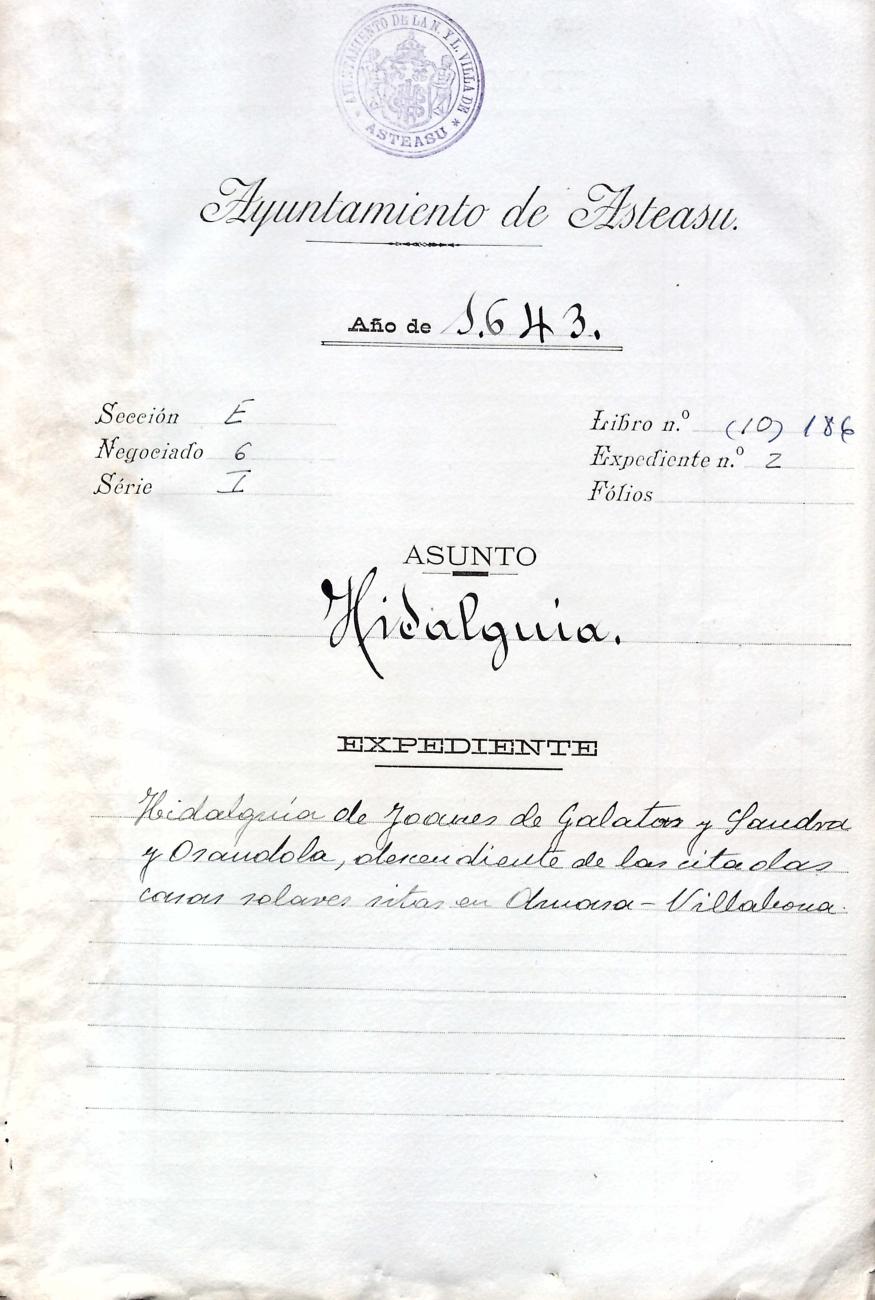 AYUNTAMIENTO DE LA N. Y L. VILLA DE
* ASTEASU *
Ayuntamiento de Asteasu.
Año de 1.643.
Sección E
Negociado 6
Série I
Libro n.º (10) 186
Expediente n.º 2
Fólios
ASUNTO
Hidalguia.
EXPEDIENTE
Hidalguía de Joanes de Galatas y Sandra
y Osandola, descendiente de las citadas
casas solares sitas en Amasa - Villabona.